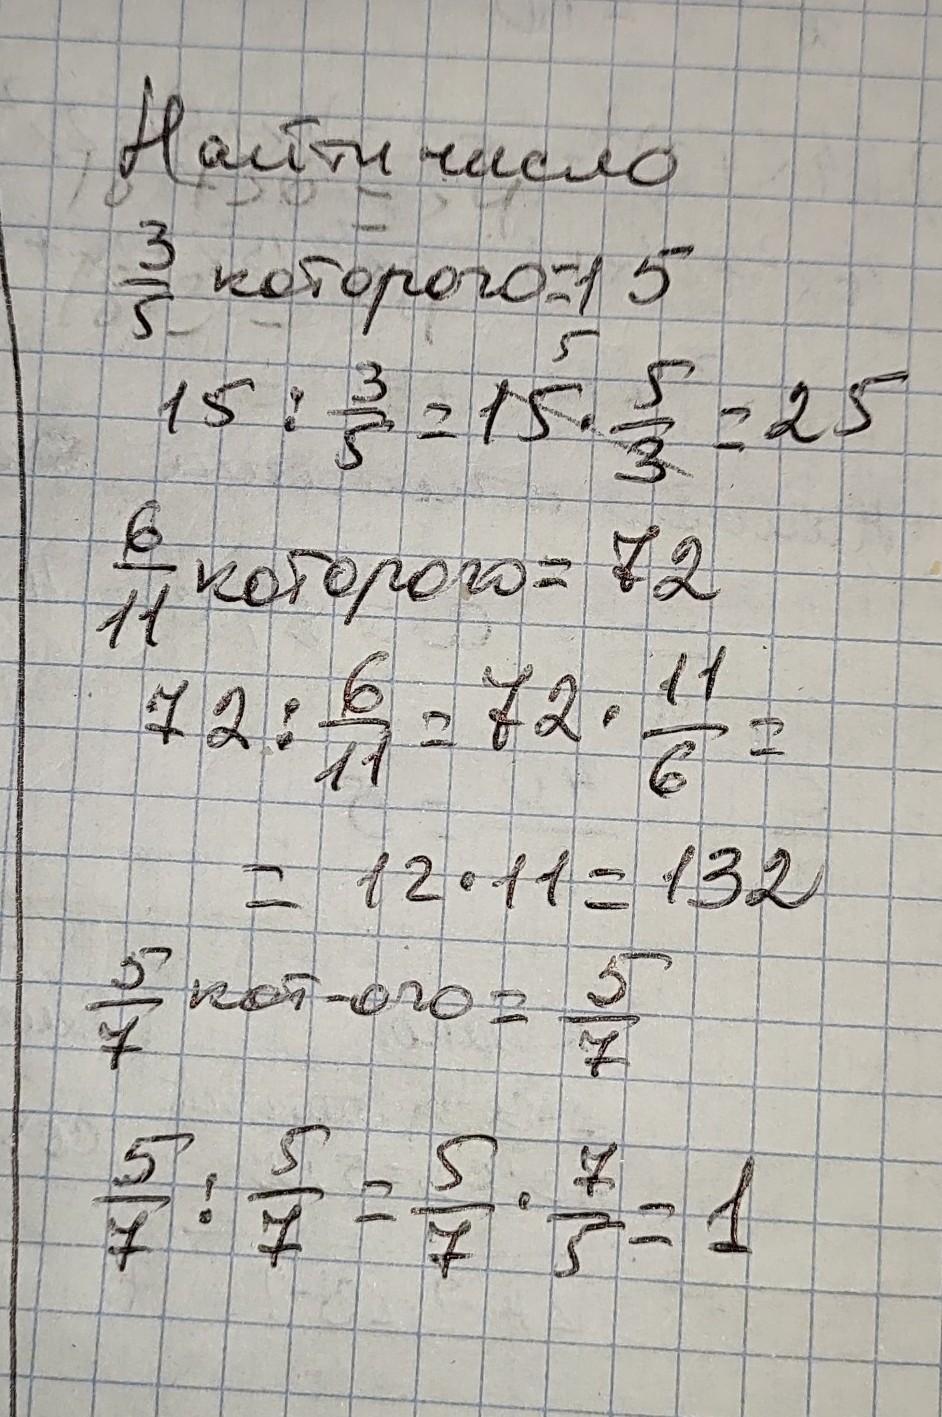 Найти число
3/5 которого = 15
15 : 3/5 = 15 · 5/3 = 25
5
6/11 которого = 72
72 : 6/11 = 72 · 11/6 =
= 12 · 11 = 132
5/7 кот-ого = 5/7
5/7 : 5/7 = 5/7 · 7/5 = 1